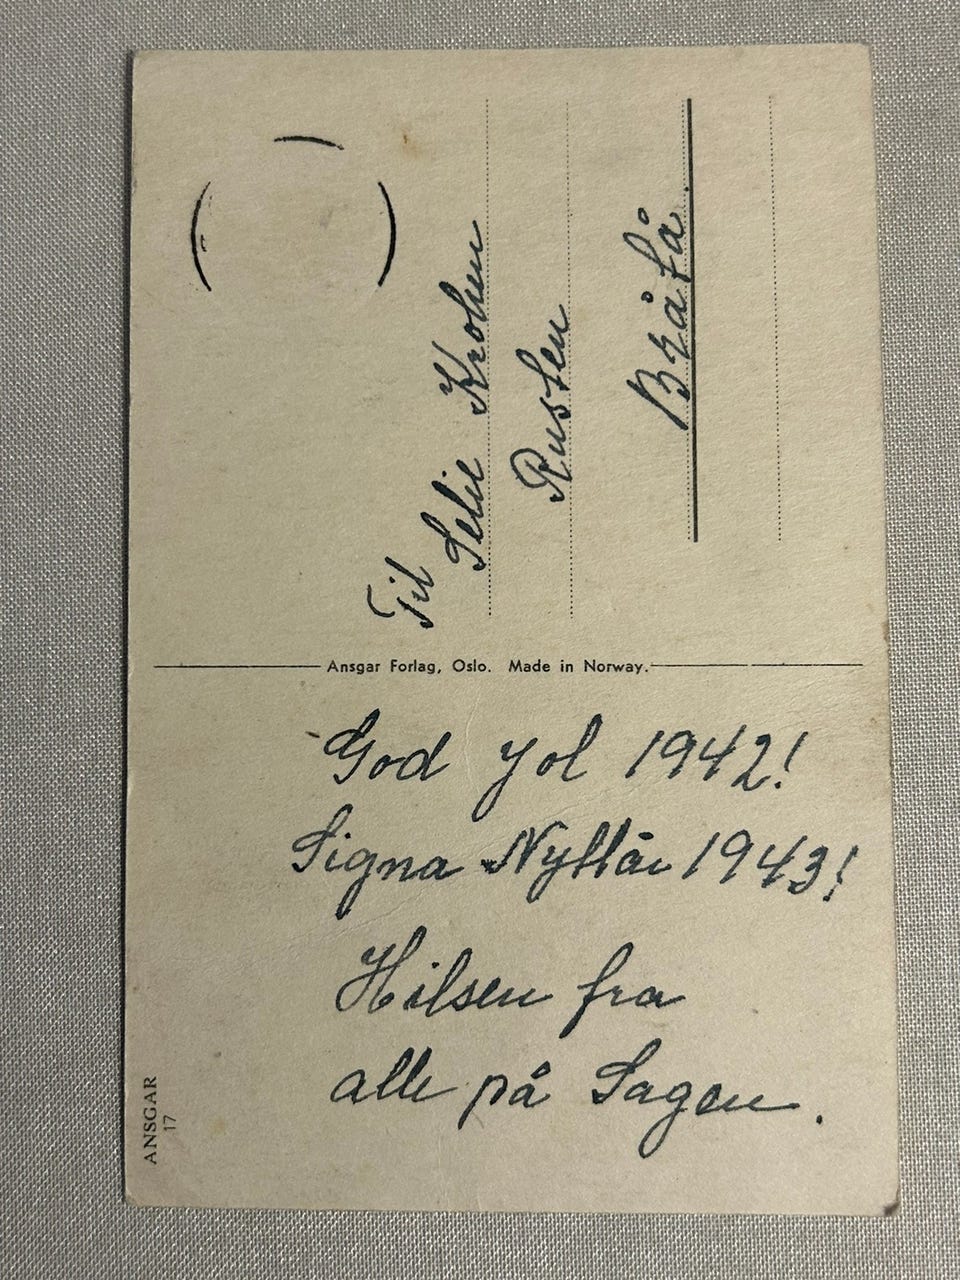 Til
Selie Krohen
Rusten
Bråtå.
Ansgar Forlag, Oslo. Made in Norway.
God Jol 1942!
Signa Nyttår 1943!
Hilsen fra
alle på Sagen.
ANSGAR
17